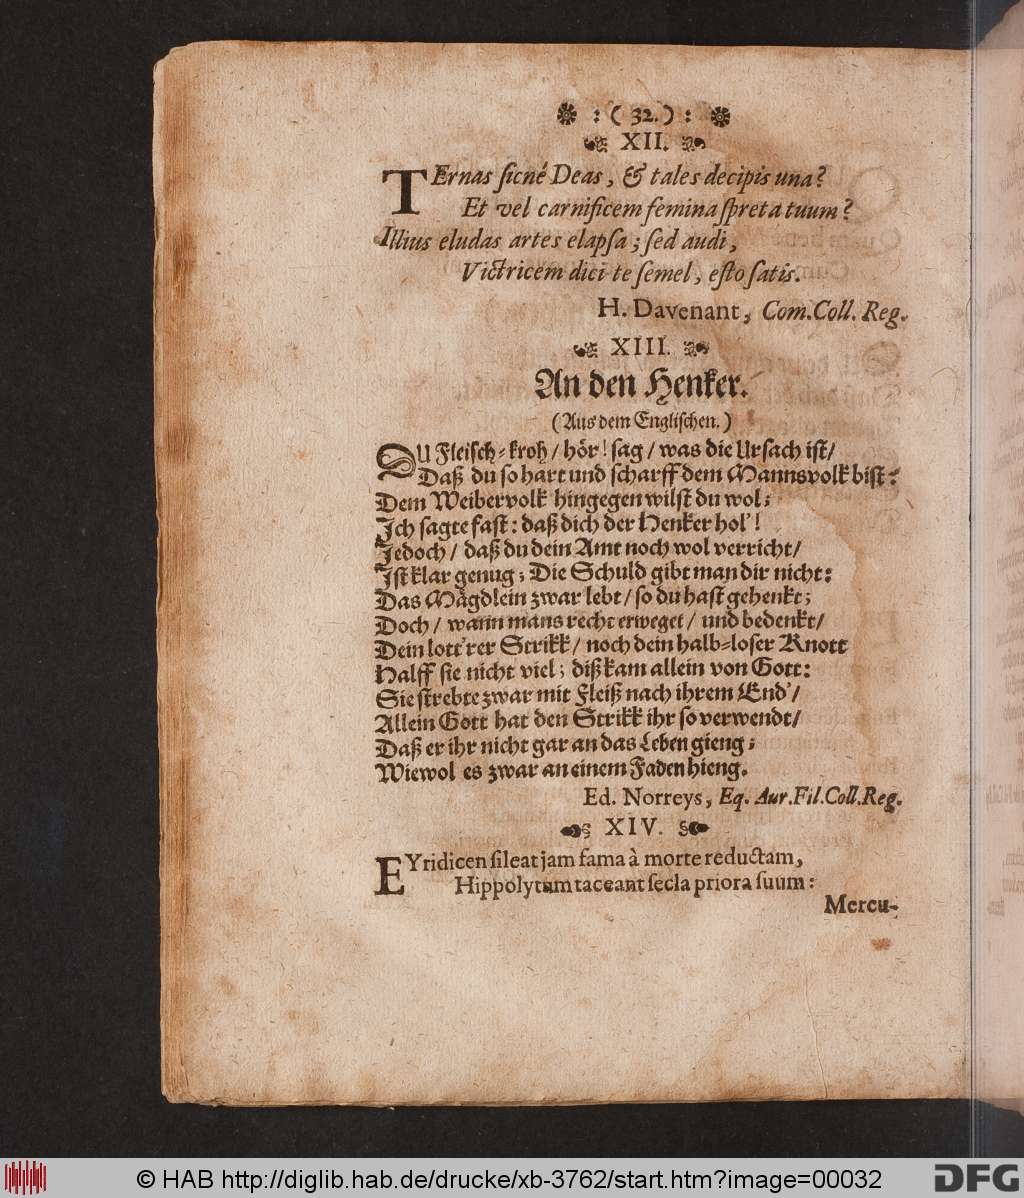 : ( 32. ) :
XII.
TErnas sicné Deas, & tales decipis una?
Et vel carnificem femina spreta tuum?
Illius eludas artes elapsa; sed audi,
Victricem dici te semel, esto satis.
H. Davenant, Com. Coll. Reg.
XIII.
An den Henker.
(Aus dem Englischen.)
DU Fleisch-kroh / hör! sag / was die Ursach ist /
Daß du so hart und scharff dem Mannsvolk bist:
Dem Weibervolk hingegen wilst du wol;
Ich sagte fast: daß dich der Henker hol'!
Jedoch / daß du dein Amt noch wol verricht /
Ist klar genug; Die Schuld gibt man dir nicht:
Das Mägdlein zwar lebt / so du hast gehenkt;
Doch / wann mans recht erweget / und bedenkt /
Dein lott'rer Strikk / noch dein halb-loser Knott
Halff sie nicht viel; diß kam allein von Gott:
Sie strebte zwar mit Fleiß nach ihrem End' /
Allein Gott hat den Strikk ihr so verwendt /
Daß er ihr nicht gar an das Leben gieng;
Wiewol es zwar an einem Faden hieng.
Ed. Norreys, Eq. Aur. Fil. Coll. Reg.
XIV.
EYridicen sileat jam fama à morte reductam,
Hippolytum taceant secla priora suum:
Mercu-
© HAB http://diglib.hab.de/drucke/xb-3762/start.htm?image=00032
DFG